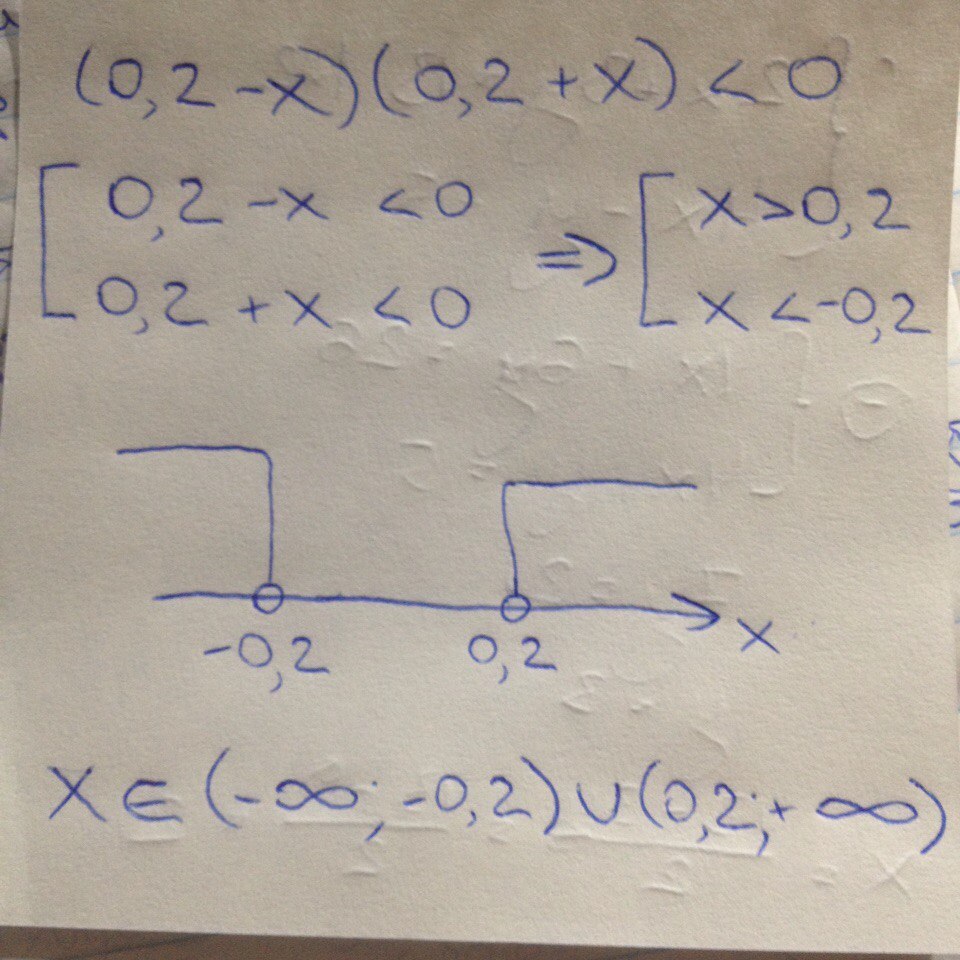 (0,2 -x)(0,2 + x) < 0
[ 0,2 -x < 0 => [ x > 0,2
0,2 + x < 0 x < -0,2
-0,2 0,2 x
x ∈ (-∞; -0,2) ∪ (0,2; + ∞)